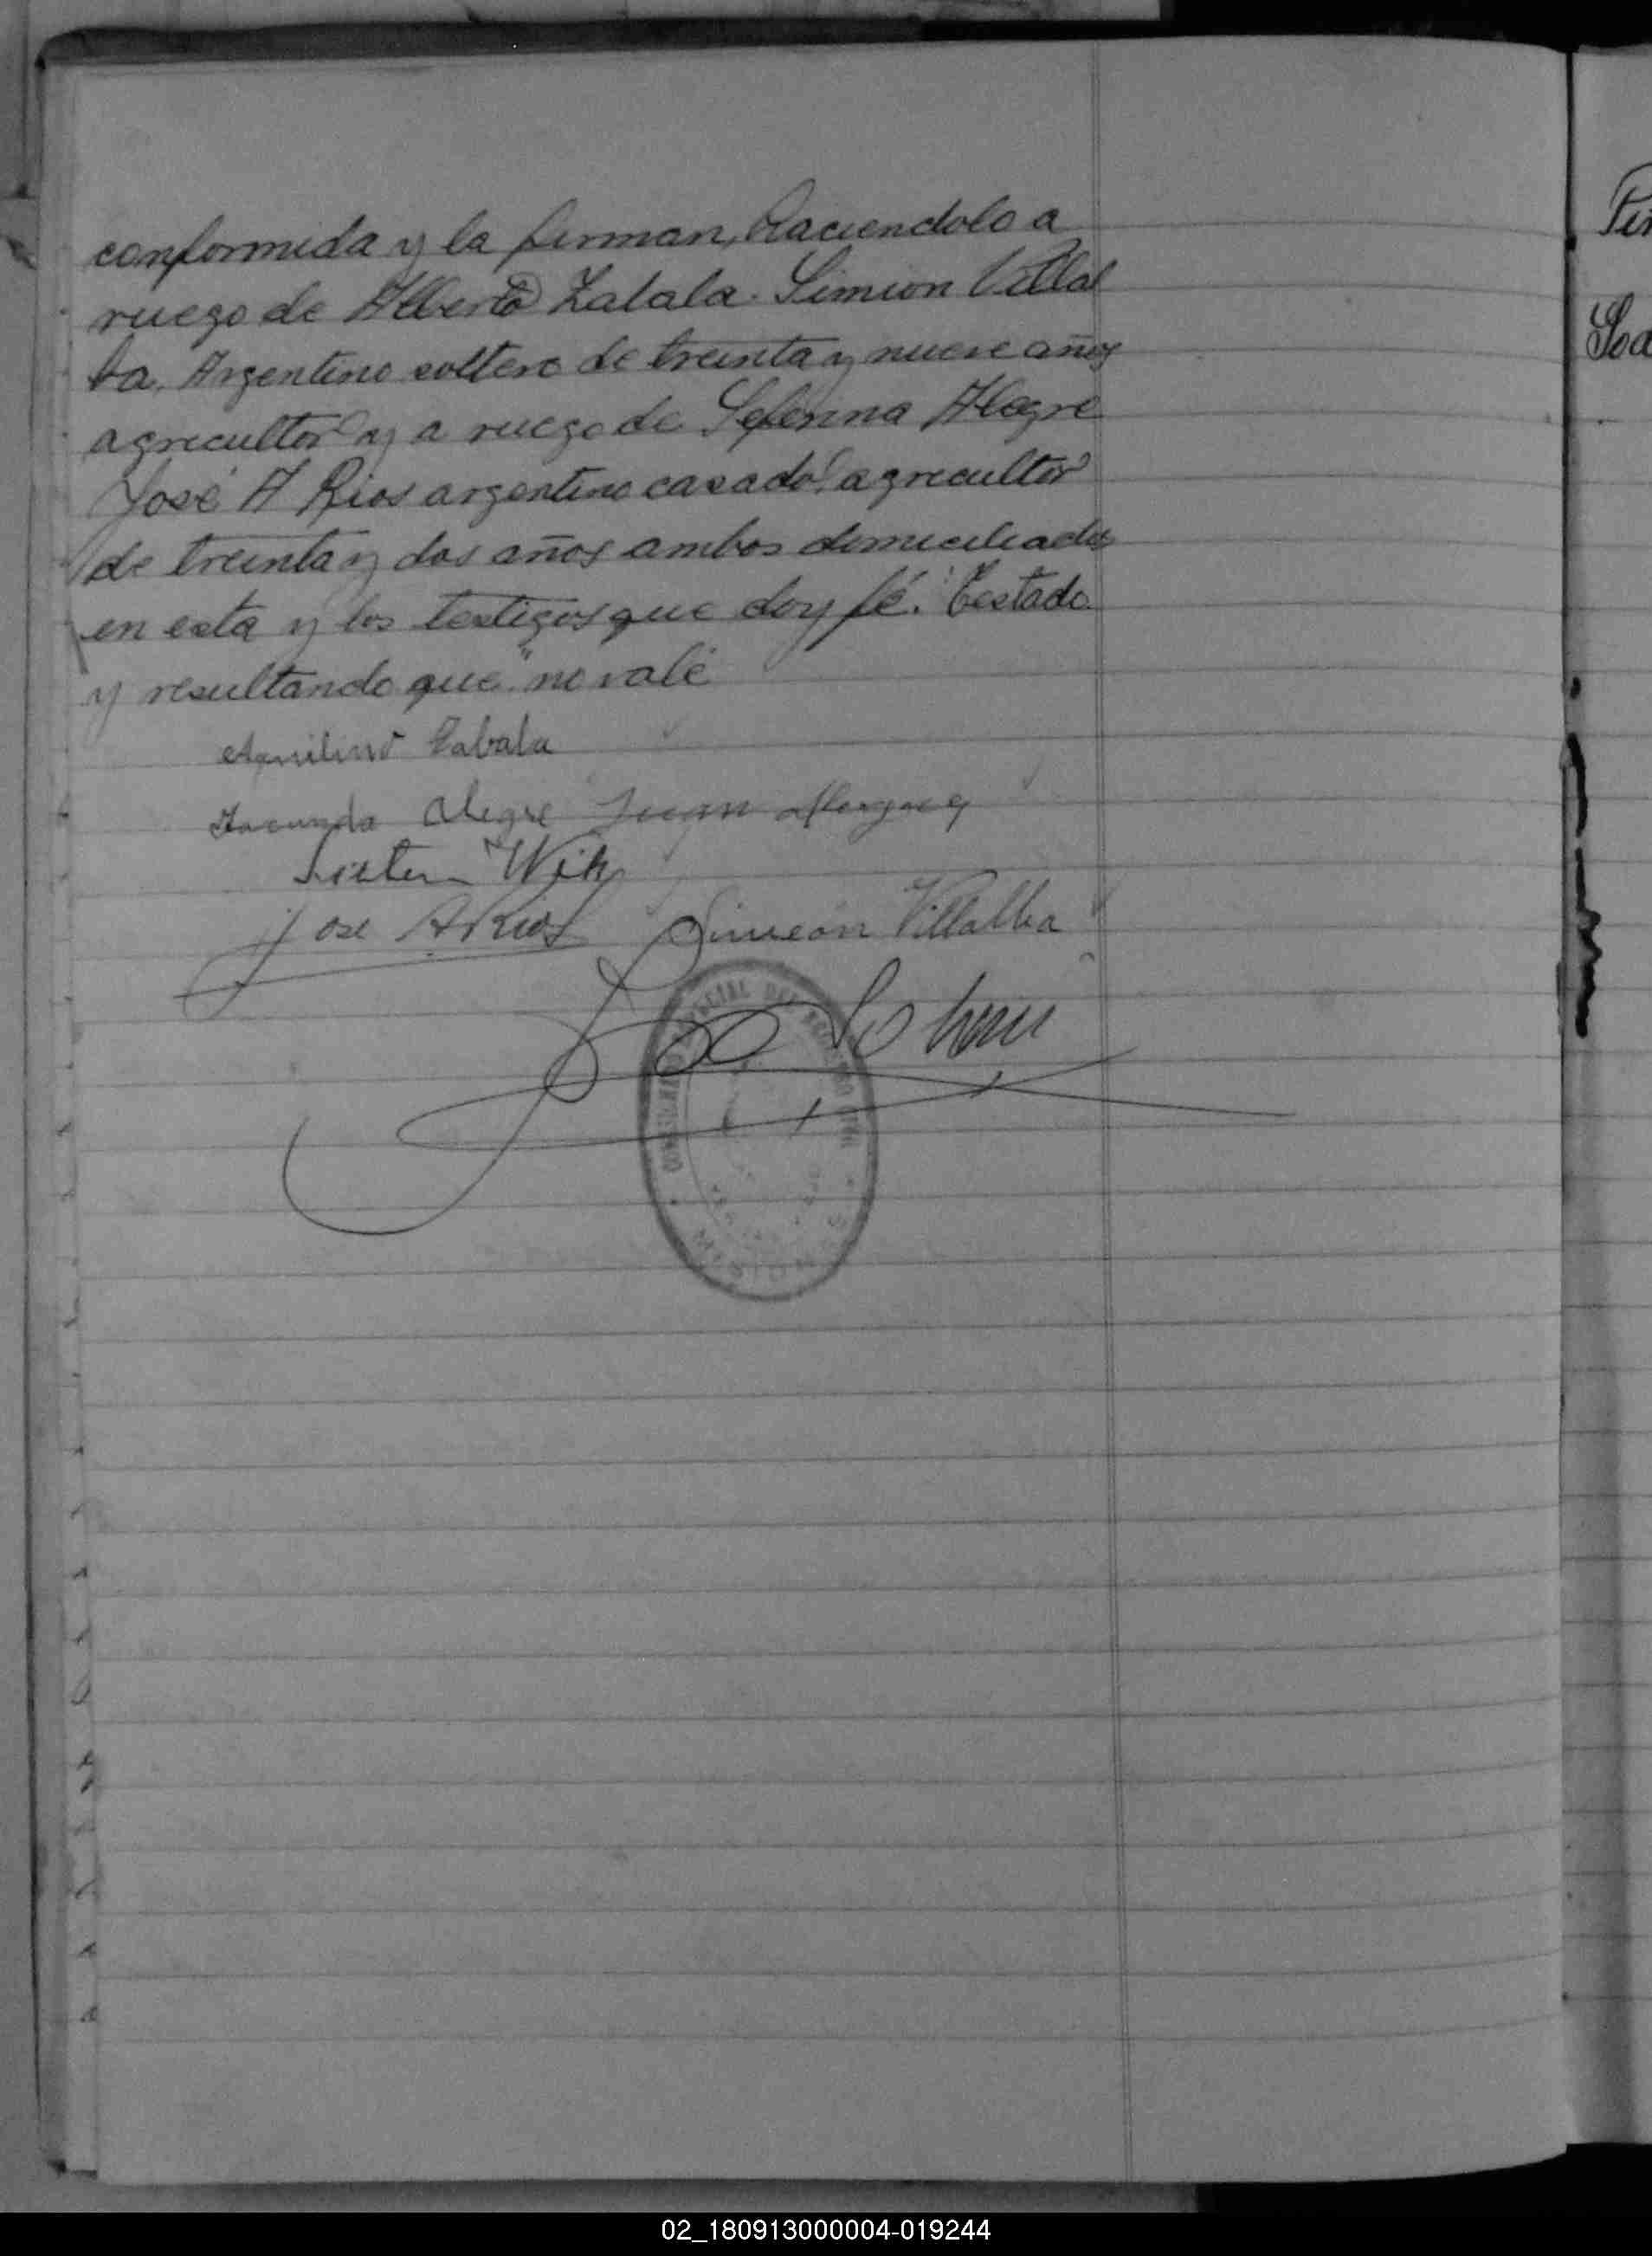 conformida y la firman, haciendolo a
ruego de Alberto Zabala. Simion Villal
ba, Argentino soltero de treinta y nueve años
agricultor y a ruego de Seferina Alegre
José A Rios argentino casado, agricultor
de treinta y dos años ambos domiciliados
en esta y los testigos que doy fé. "Testado
y resultando que" no vale
Aquilino Zabala
Facundo Alegre Juan
Jose A Rios Simeón Villalba
REGISTRO CIVIL
MISIONES
Per
02_180913000004-019244